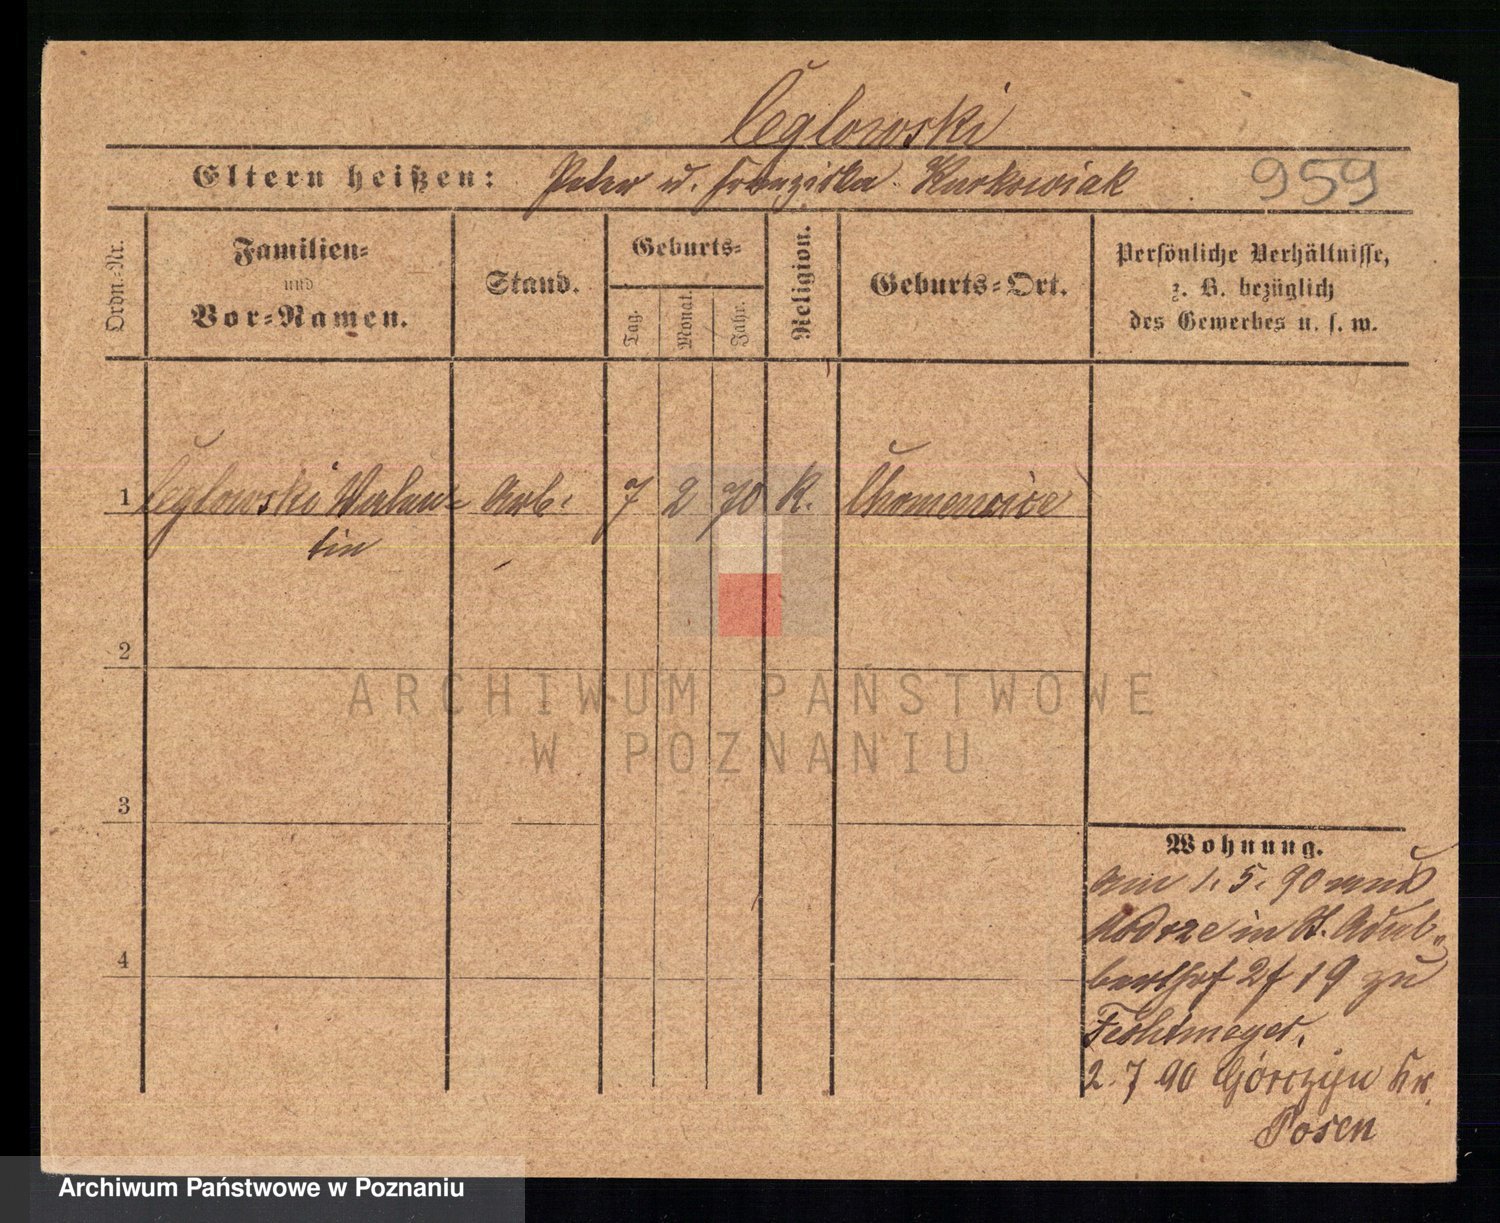 Ceglowski
Eltern heißen: Peter u. Franziska Kurkowiak 959
Ordn.-Nr.
Familien-
und
Vor-Namen.
Stand.
Geburts-
Tag.
Monat.
Jahr.
Religion.
Geburts-Ort.
Persönliche Verhältnisse,
z. B. bezüglich
des Gewerbes u. s. w.
1 Ceglowski Valen- Arb. 7 2 70 K. Chomencice
tin
2
3
4
Wohnung.
am 1. 5. 90 aus
Modrze in St. Adal-
bertstr 27 19 zu
Fechtmeyer.
2. 7 90 Górczyn Kr.
Posen
ARCHIWUM PAŃSTWOWE
W POZNANIU
Archiwum Państwowe w Poznaniu